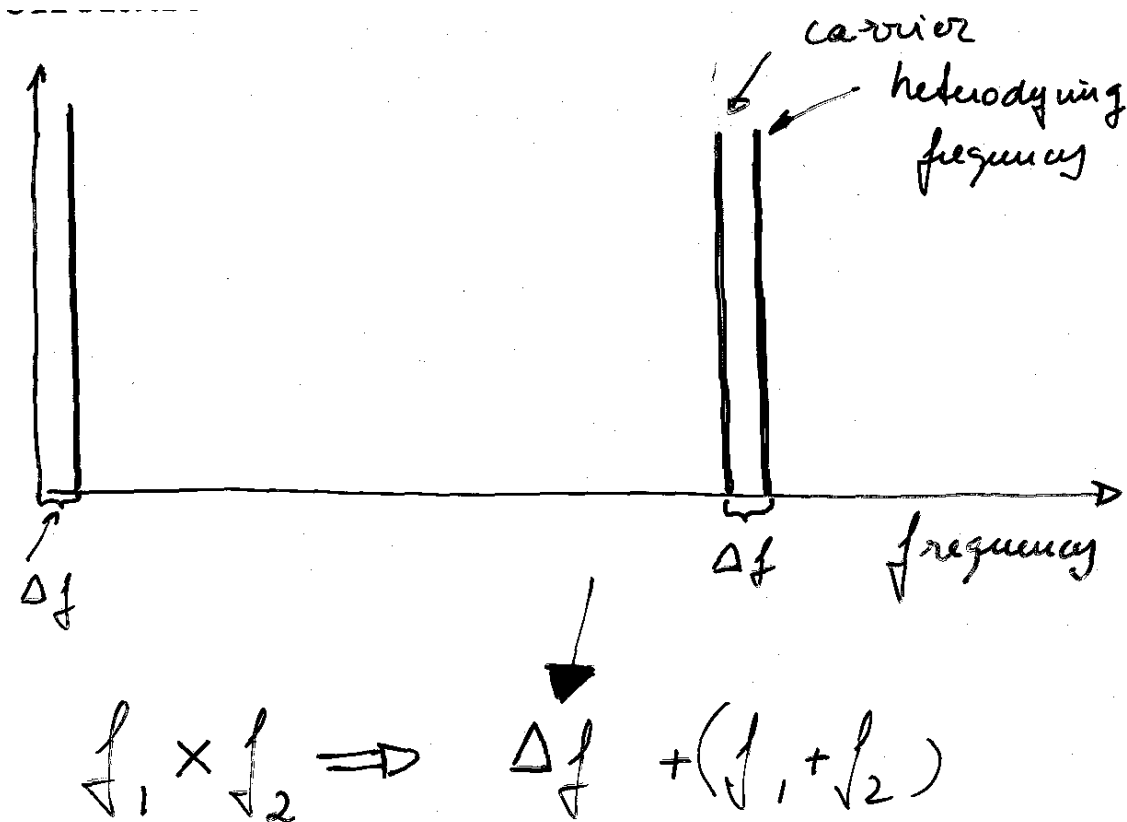 carrier
heterodyning
frequency
Δf
Δf
frequency
f₁ × f₂ ⇒ Δf + (f₁ + f₂)